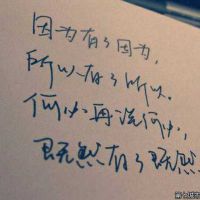 因为有了因为，
所以有了所以。
何必再说何必，
既然有了既然